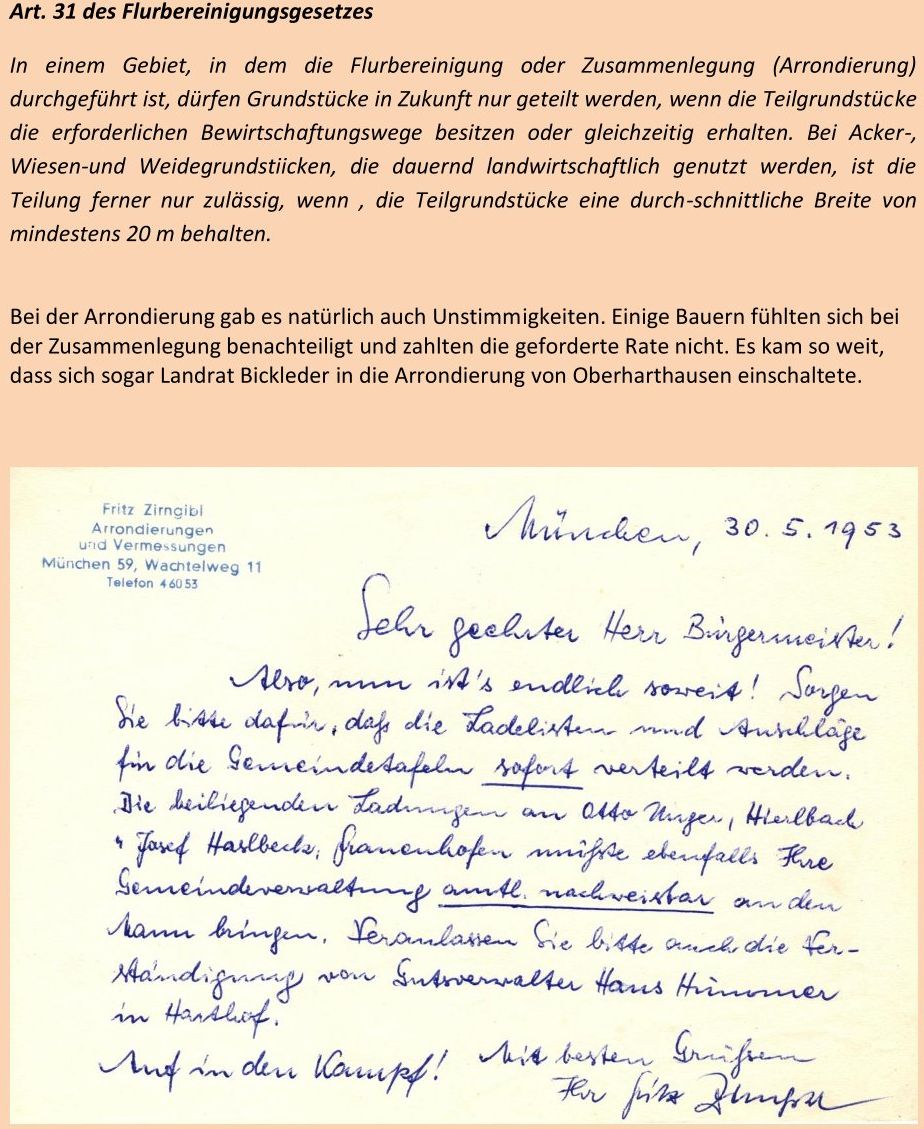 Art. 31 des Flurbereinigungsgesetzes
In einem Gebiet, in dem die Flurbereinigung oder Zusammenlegung (Arrondierung)
durchgeführt ist, dürfen Grundstücke in Zukunft nur geteilt werden, wenn die Teilgrundstücke
die erforderlichen Bewirtschaftungswege besitzen oder gleichzeitig erhalten. Bei Acker-,
Wiesen-und Weidegrundstiicken, die dauernd landwirtschaftlich genutzt werden, ist die
Teilung ferner nur zulässig, wenn , die Teilgrundstücke eine durch-schnittliche Breite von
mindestens 20 m behalten.
Bei der Arrondierung gab es natürlich auch Unstimmigkeiten. Einige Bauern fühlten sich bei
der Zusammenlegung benachteiligt und zahlten die geforderte Rate nicht. Es kam so weit,
dass sich sogar Landrat Bickleder in die Arrondierung von Oberharthausen einschaltete.
Fritz Zirngibl
Arrondierungen
und Vermessungen
München 59, Wachtelweg 11
Telefon 46053
München, 30.5.1953
Sehr geehrter Herr Bürgermeister!
Also, nun ist's endlich soweit! Sorgen
Sie bitte dafür, daß die Ladelisten und Anschläge
für die Gemeindetafeln sofort verteilt werden.
Die beiliegenden Ladungen an Otto Unger, Hierlbach
" Josef Haslbeck, Frauenhofen müßte ebenfalls Ihre
Gemeindeverwaltung amtl. nachweisbar an den
Mann bringen. Veranlassen Sie bitte auch die Ver-
ständigung von Gutsverwalter Hans Hümmer
in Harthof.
Auf in den Kampf! Mit besten Grüßen
Ihr Fritz Zirngibl